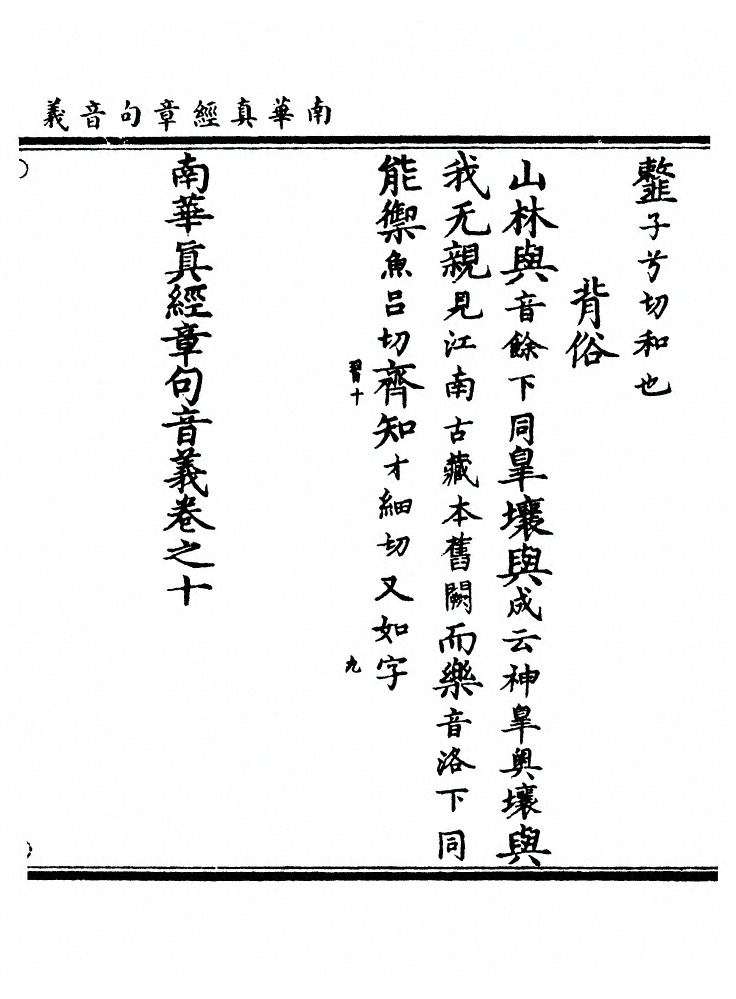 南華真經章句音義
䪠子兮切和也
背俗
山林與音餘下同皐壤與成云神皐奧壤與
我无親見江南古藏本舊闕而樂音洛下同
能禦魚呂切齊知才細切又如字
習十
九
南華眞經章句音義卷之十